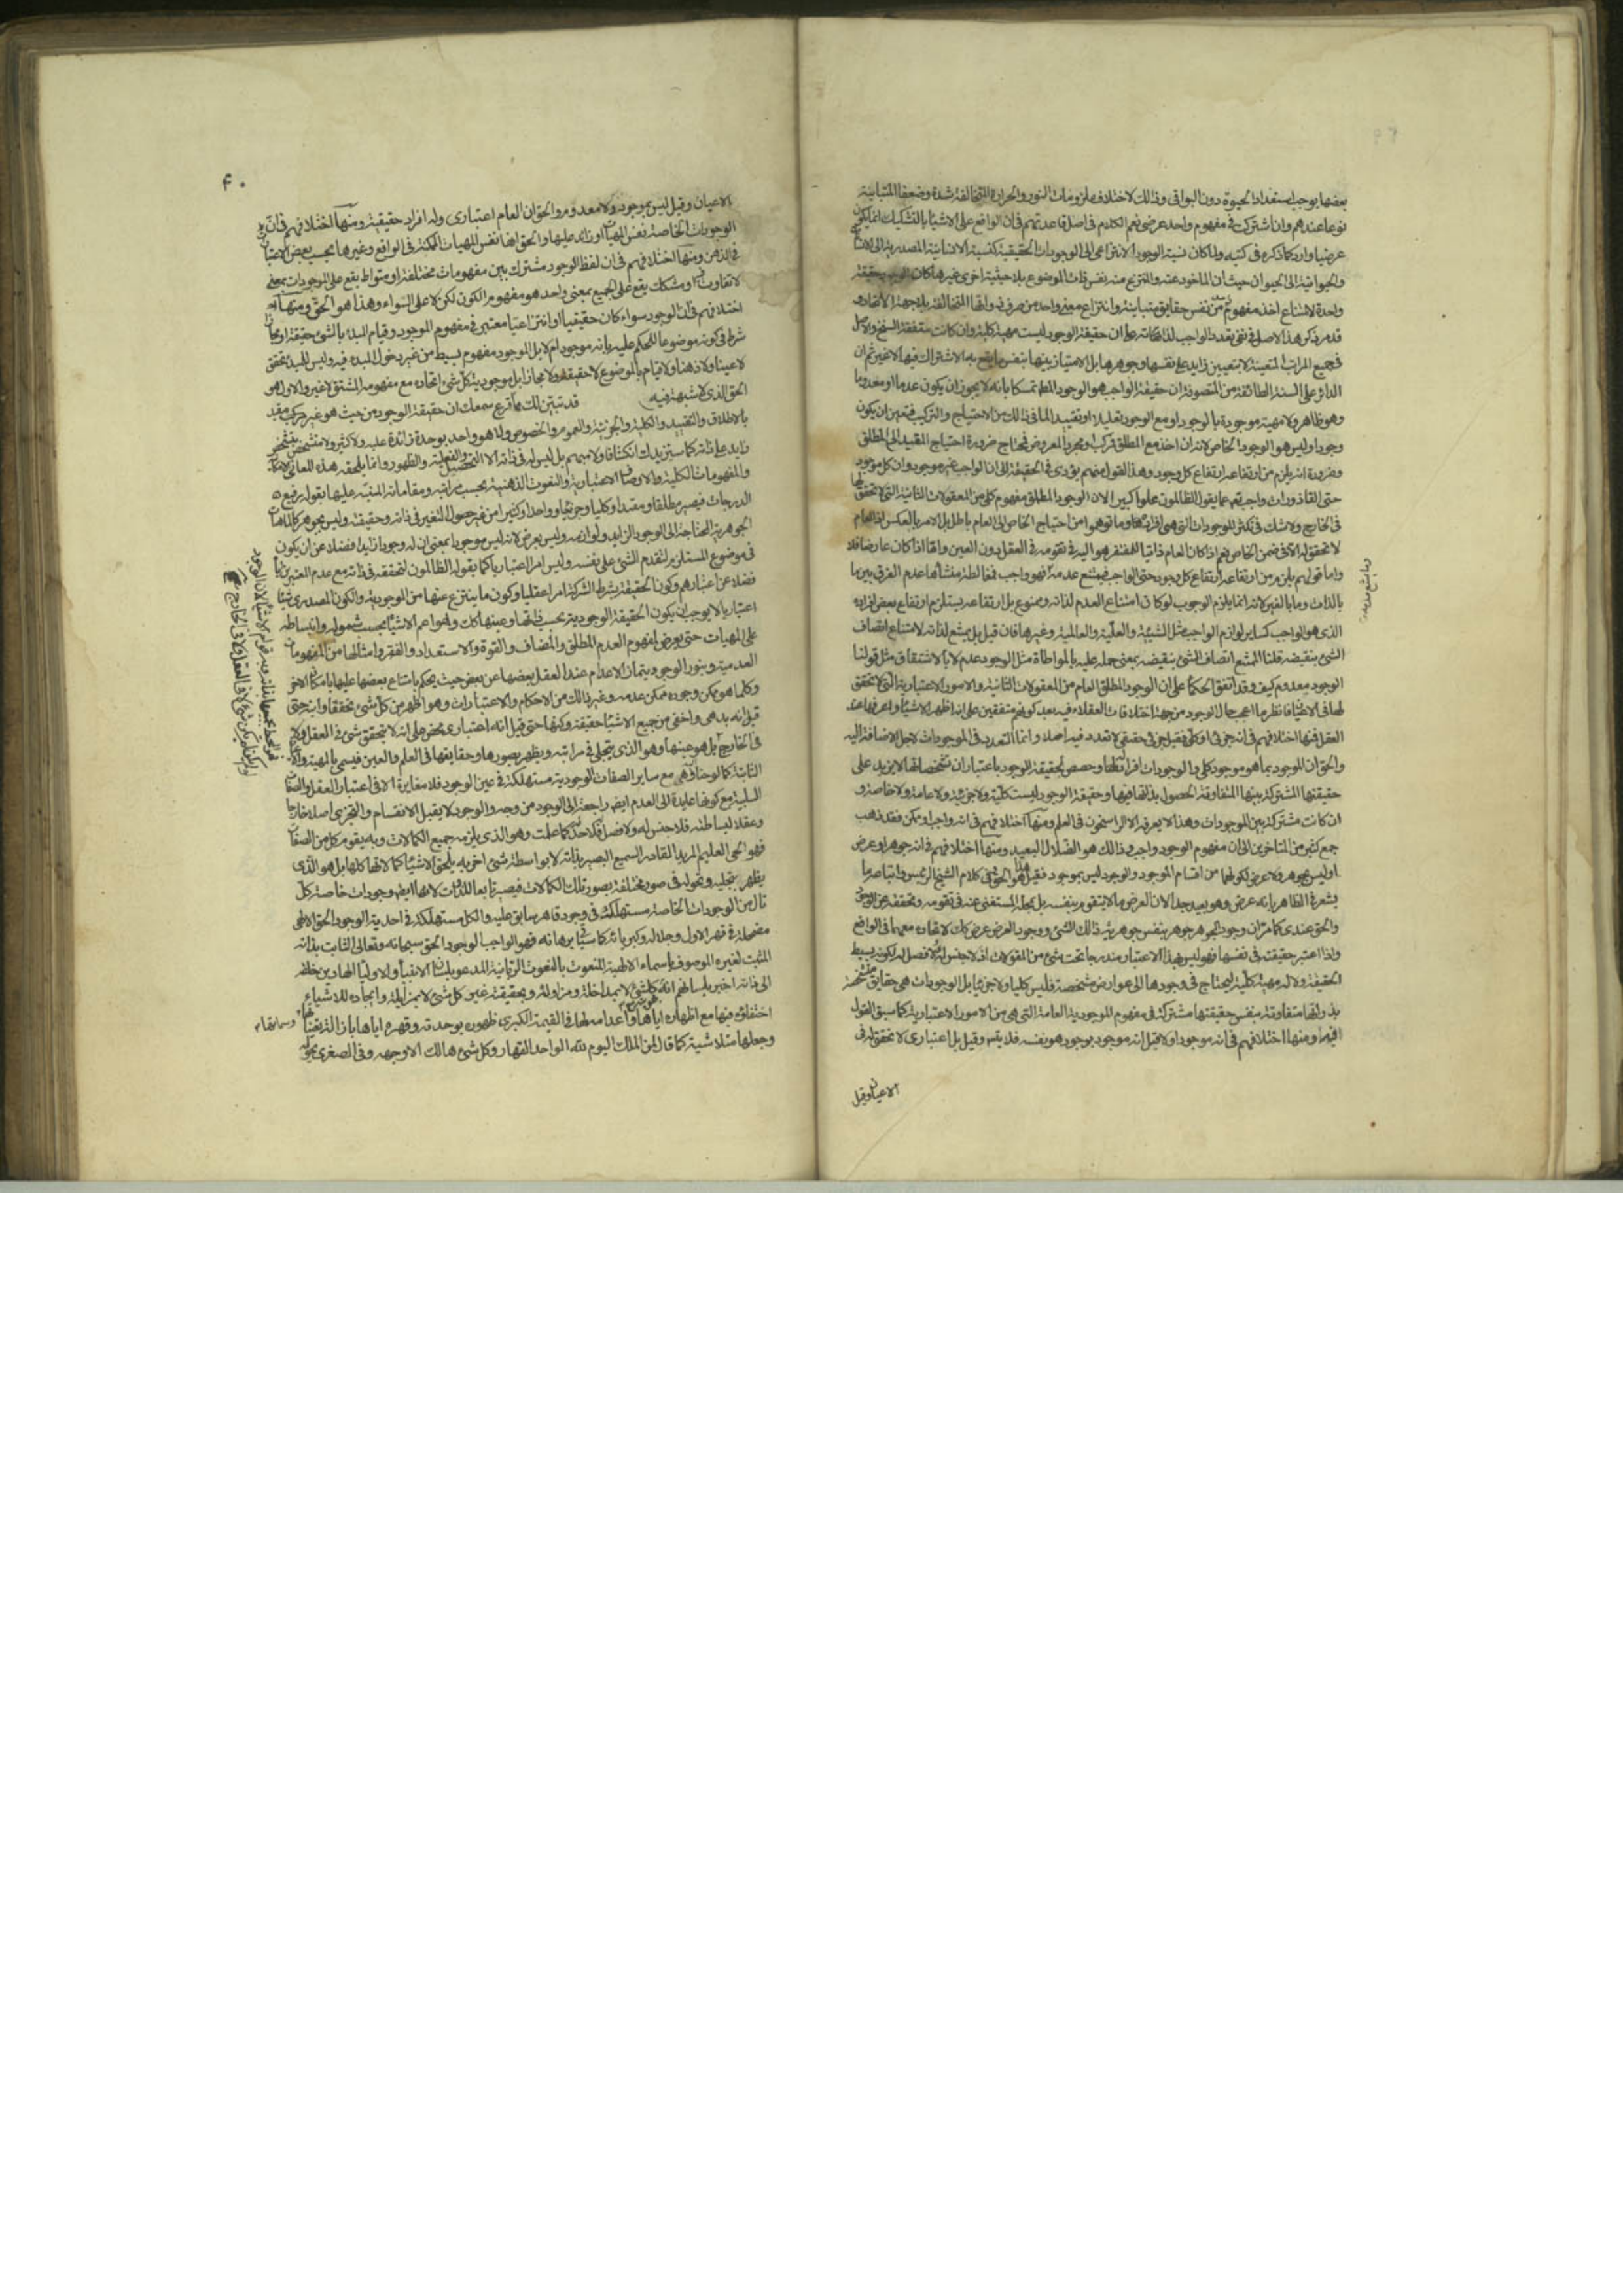 بعضها يوجب استعداد الحيوة دون البواقى وذلك لاختلاف ملزومات النور والحرارة المتخالفة شدة وضعفا المتباينة
نوعا عندهم وان اشتركت فى مفهوم واحد عرضى نعم الكلام فى اصل قاعدتهم فان الواقع على الاشياء بالتشكيك انما يكون
عرضيا وارد كما ذكره فى كتبه ولما كان نسبة الوجود الانتزاعى الى الوجودات الحقيقية كنسبة الانسانية المصدرية الى الانسان
والحيوانية الى الحيوان حيث ان الماخوذ عنه والمنتزع منه نفس ذات الموضوع بلا حيثية اخرى غيرها كان الوجود حقيقة
واحدة لامتناع اخذ مفهوم من نفس حقايق متباينة وانتزاع معنى واحد من صرف ذواتها المتخالفة بلا جهة الاتحاد و
قد مر ذكر هذا الاصل فى نفى تعدد الواجب لذاته
فجميع المراتب المتعينة لا بتعيين زايد على نفسها وجوهرها بل الامتياز بينها بنفس ما يقع به الاشتراك فيها لا غير ثم ان
الدائر على السنة الطائفة من المتصوفة ان حقيقة الواجب هو الوجود المطلق تمسكا بانه لا يجوز ان يكون عدما او معدوما
وهو ظاهر ولا مهية موجودة بالوجود او مع الوجود تعليلا او تقييدا لما فى ذلك من الاحتياج والتركيب فتعين ان يكون
وجودا وليس هو الوجود الخاص لانه ان اخذ مع المطلق فمركب او مجرد المعروض فمحتاج ضرورة احتياج المقيد الى المطلق
وضرورة انه يلزم من ارتفاعه ارتفاع كل وجود وهذا القول منهم يؤدى فى الحقيقة الى ان الواجب غير موجود وان كل موجود
حتى القاذورات واجب تعالى عما يقول الظالمون علوا كبيرا لان الوجود المطلق مفهوم كلى من المعقولات الثانية التى لا تحقق لها
فى الخارج ولا شك فى تكثر الموجودات التى هى افرادها وما توهموا من احتياج الخاص الى العام باطل بل الامر بالعكس اذ العام
لا تحقق له الا فى ضمن الخاص نعم اذا كان العام ذاتيا للخاص يفتقر هو اليه فى تقومه فى العقل دون العين واما اذا كان عارضا فلا
واما قولهم يلزم من ارتفاعه ارتفاع كل وجود حتى الواجب فيمتنع عدمه فهو واجب فمغالطة منشأها عدم الفرق بين ما
بالذات وما بالغير لانه انما يلزم الوجوب لو كان امتناع العدم لذاته وممنوع بل ارتفاعه يستلزم ارتفاع بعض افراده
الذى هو الواجب كساير لوازم الواجب مثل الشيئية والعلية والعالمية وغيرها فان قيل بل يمتنع لذاته لامتناع اتصاف
الشئ بنقيضه قلنا الممتنع اتصاف الشئ بنقيضه بمعنى حمله عليه بالمواطاة مثل الوجود عدم لا بالاشتقاق مثل قولنا
الوجود معدوم كيف وقد اتفق الحكماء على ان الوجود المطلق العام من المعقولات الثانية والامور الاعتبارية التى لا تحقق
لها فى الاعيان فانظر ما اعجب حال الوجود من جهة اختلافات العقلاء فيه بعد كونهم متفقين على انه اظهر الاشياء واعرفها عند
العقل فمنها اختلافهم فى انه جزئى او كلى فقيل جزئى حقيقى لا تعدد فيه اصلا وانما التعدد فى الموجودات لاجل الاضافة اليه
والحق ان الموجود بما هو موجود كلى والوجودات افراد لها وحصص لحقيقة الوجود باعتبار ان تشخصاتها لا يزيد على
حقيقتها المشتركة بينها المتفاوتة الحصول بذاتها فيها وحقيقة الوجود ليست كلية ولا جزئية ولا عامة ولا خاصة و
ان كانت مشتركة بين الموجودات وهذا لا يعرفه الا الراسخون فى العلم ومنها اختلافهم فى انه واجب او ممكن فقد ذهب
جمع كثير من المتاخرين الى ان مفهوم الوجود واجب وذلك هو الضلال البعيد ومنها اختلافهم فى انه جوهر او عرض
او ليس بجوهر ولا عرض لكونهما من اقسام الموجود والوجود ليس بموجود فقيل هذا هو الحق وفى كلام الشيخ الرئيس واتباعه ما
يشعر فى الظاهر بانه عرض وهو بعيد جدا لان العرض ما لا يتقوم بنفسه بل بمحله المستغنى عنه فى تقومه وتحققه
والحق عندى كما مر ان وجود الجوهر جوهر بنفس جوهرية ذلك الشئ ووجود العرض عرض كذلك لاتحاده معهما فى الواقع
واذا اعتبر حقيقته فى نفسها فهو ليس بهذا الاعتبار مندرجا تحت شئ من المقولات اذ لا جنس له ولا فصل له لكونه بسيط
الحقيقة ولا له مهية كلية ليحتاج فى وجودها الى عوارض مشخصة فليس كليا ولا جزئيا بل الوجودات هى حقايق متشخصة
بذواتها متفاوتة بنفس حقيقتها مشتركة فى مفهوم الموجودية العامة التى هى من الامور الاعتبارية كما سبق القول
فيه ومنها اختلافهم فى انه موجود او لا فقيل انه موجود بوجود هو نفسه فلا يتس وقيل بل اعتبارى لا تحقق له فى
الاعيان وقيل
۴۰
الاعيان وقيل ليس بموجود ولا معدوم والحق ان العام اعتبارى وله افراد حقيقية ومنها اختلافهم فى ان
الوجودات الخاصة نفس المهيات او زائد عليها والحق انها نفس المهيات الممكنة فى الواقع وغيرها بحسب بعض الاعتبارات
فى الذهن ومنها اختلافهم فى ان لفظ الوجود مشترك بين مفهومات مختلفة او متواط يقع على الموجودات بمعنى
لا تفاوت فيه او مشكك يقع على الجميع بمعنى واحد هو مفهوم الكون لكن لا على السواء وهذا هو الحق ومنها
اختلافهم فى ان الوجود سواء كان حقيقيا او انتزاعيا معتبر فى مفهوم الموجود وقيام المبدء بالشئ حقيقة او مجازا
شرط فى كونه موضوعا للحكم عليه بانه موجود ام لا بل الموجود مفهوم بسيط من غير دخول المبدء فيه وليس للمبدء تحقق
لا عينا ولا ذهنا ولا قيام بالموضوع لا حقيقة ولا مجازا بل موجودية كل شئ اتحاده مع مفهوم المشتق لا غير والاول هو
الحق الذى لا شبهة فيه قد تبين لك مما قرع سمعك ان حقيقة الوجود من حيث هو غير مقيد
بالاطلاق والتقييد والكلية والجزئية والعموم والخصوص ولا هو واحد بوحدة زائدة عليه ولا كثير ولا متشخص بتشخص
زايد على ذاته كما سنزيدك انكشافا ولا مبهم بل ليس له فى ذاته الا التحصل والفعلية والظهور وانما يلحقه هذه المعانى الامكانية
والمفهومات الكلية والاوصاف الاعتبارية والنعوت الذهنية بحسب مراتبه ومقاماته المنبه عليها بقوله رفيع
الدرجات فيصير مطلقا ومقيدا وكليا وجزئيا وواحدا وكثيرا من غير حصول التغير فى ذاته وحقيقته وليس بجوهر كالمهيات
الجوهرية المحتاجة الى الوجود الزايد ولوازمه وليس بعرض لانه ليس موجودا بمعنى ان له وجودا زايدا فضلا عن ان يكون
فى موضوع المستلزم لتقدم الشئ على نفسه وليس امرا اعتباريا كما يقوله الظالمون لتحققه فى ذاته مع عدم المعتبرين اياه
فضلا عن اعتبارهم وكون الحقيقة بشرط الشركة امرا عقليا وكون ما ينتزع عنها من الموجودية والكون المصدرى شيئا
اعتباريا لا يوجب ان يكون الحقيقة الوجودية بحسب ذاتها وعينها كذلك وهو اعم الاشياء بحسب شموله وانبساطه
على المهيات حتى يعرض لمفهوم العدم المطلق والمضاف والقوة والاستعداد والفقر وامثالها من المفهومات
العدمية وبنور الوجود يتمايز الاعدام عند العقل بعضها عن بعض حيث يحكم بامتناع بعضها عليها بامكان الاخر
وكلما هو ممكن وجوده ممكن عدمه وغير ذلك من الاحكام والاعتبارات وهو اظهر من كل شئ تحققا وانية حتى
قيل انه بديهى واخفى من جميع الاشياء حقيقة وكنها حتى قيل انه اعتبارى محض على انه لا يتحقق شئ فى العقل ولا
فى الخارج بل هو عينها وهو الذى يتجلى فى مراتبه ويظهر بصورها وحقايقها فى العلم والعين فيسمى بالمهية والاعيان
الثابتة كما لوحنا وهى مع ساير الصفات الوجودية مستهلكة فى عين الوجود فلا مغايرة الا فى اعتبار العقل والصفات
السلبية مع كونها عايدة الى العدم ايضا راجعة الى الوجود من وجه والوجود لا يقبل الانقسام والتجزى اصلا خارجا
وعقلا لبساطته فلا جنس له ولا فصل له فلا حد له كما علمت وهو الذى يلزمه جميع الكمالات وبه يقوم كل من الصفات
فهو الحى العليم المريد القادر السميع البصير بذاته لا بواسطة شئ اخر به يلحق الاشياء كمالاتها كلها بل هو الذى
يظهر بتجليه وتحوله فى صور مختلفة بصور تلك الكمالات فيصير تابعا للذوات لانها ايضا وجودات خاصة وكل
تال من الوجودات الخاصة مستهلكة فى وجود قاهر سابق عليه والكل مستهلكة فى احدية الوجود الحق الالهى
مضمحلة فى قهر الاول وجلاله وكبريائه كما سياتى برهانه فهو الواجب الوجود الحق سبحانه وتعالى الثابت بذاته
المثبت لغيره الموصوف بالاسماء الالهية المنعوت بالنعوت الربانية المدعو بلسان الانبياء والاولياء الهادين خلقه
الى ذاته اخبر بلسانهم انه بهويته مع كل شئ لا بمداخلة ومزاولة وبحقيقته غير كل شئ لا بمزايلة وايجاده للاشياء
اختفاؤه فيها مع اظهاره اياها واعدامه لها فى القيمة الكبرى ظهوره بوحدته وقهره اياها بازالة تعيناتها وسماتها
وجعلها متلاشية كما قال لمن الملك اليوم لله الواحد القهار وكل شئ هالك الا وجهه وفى الصغرى تحوله